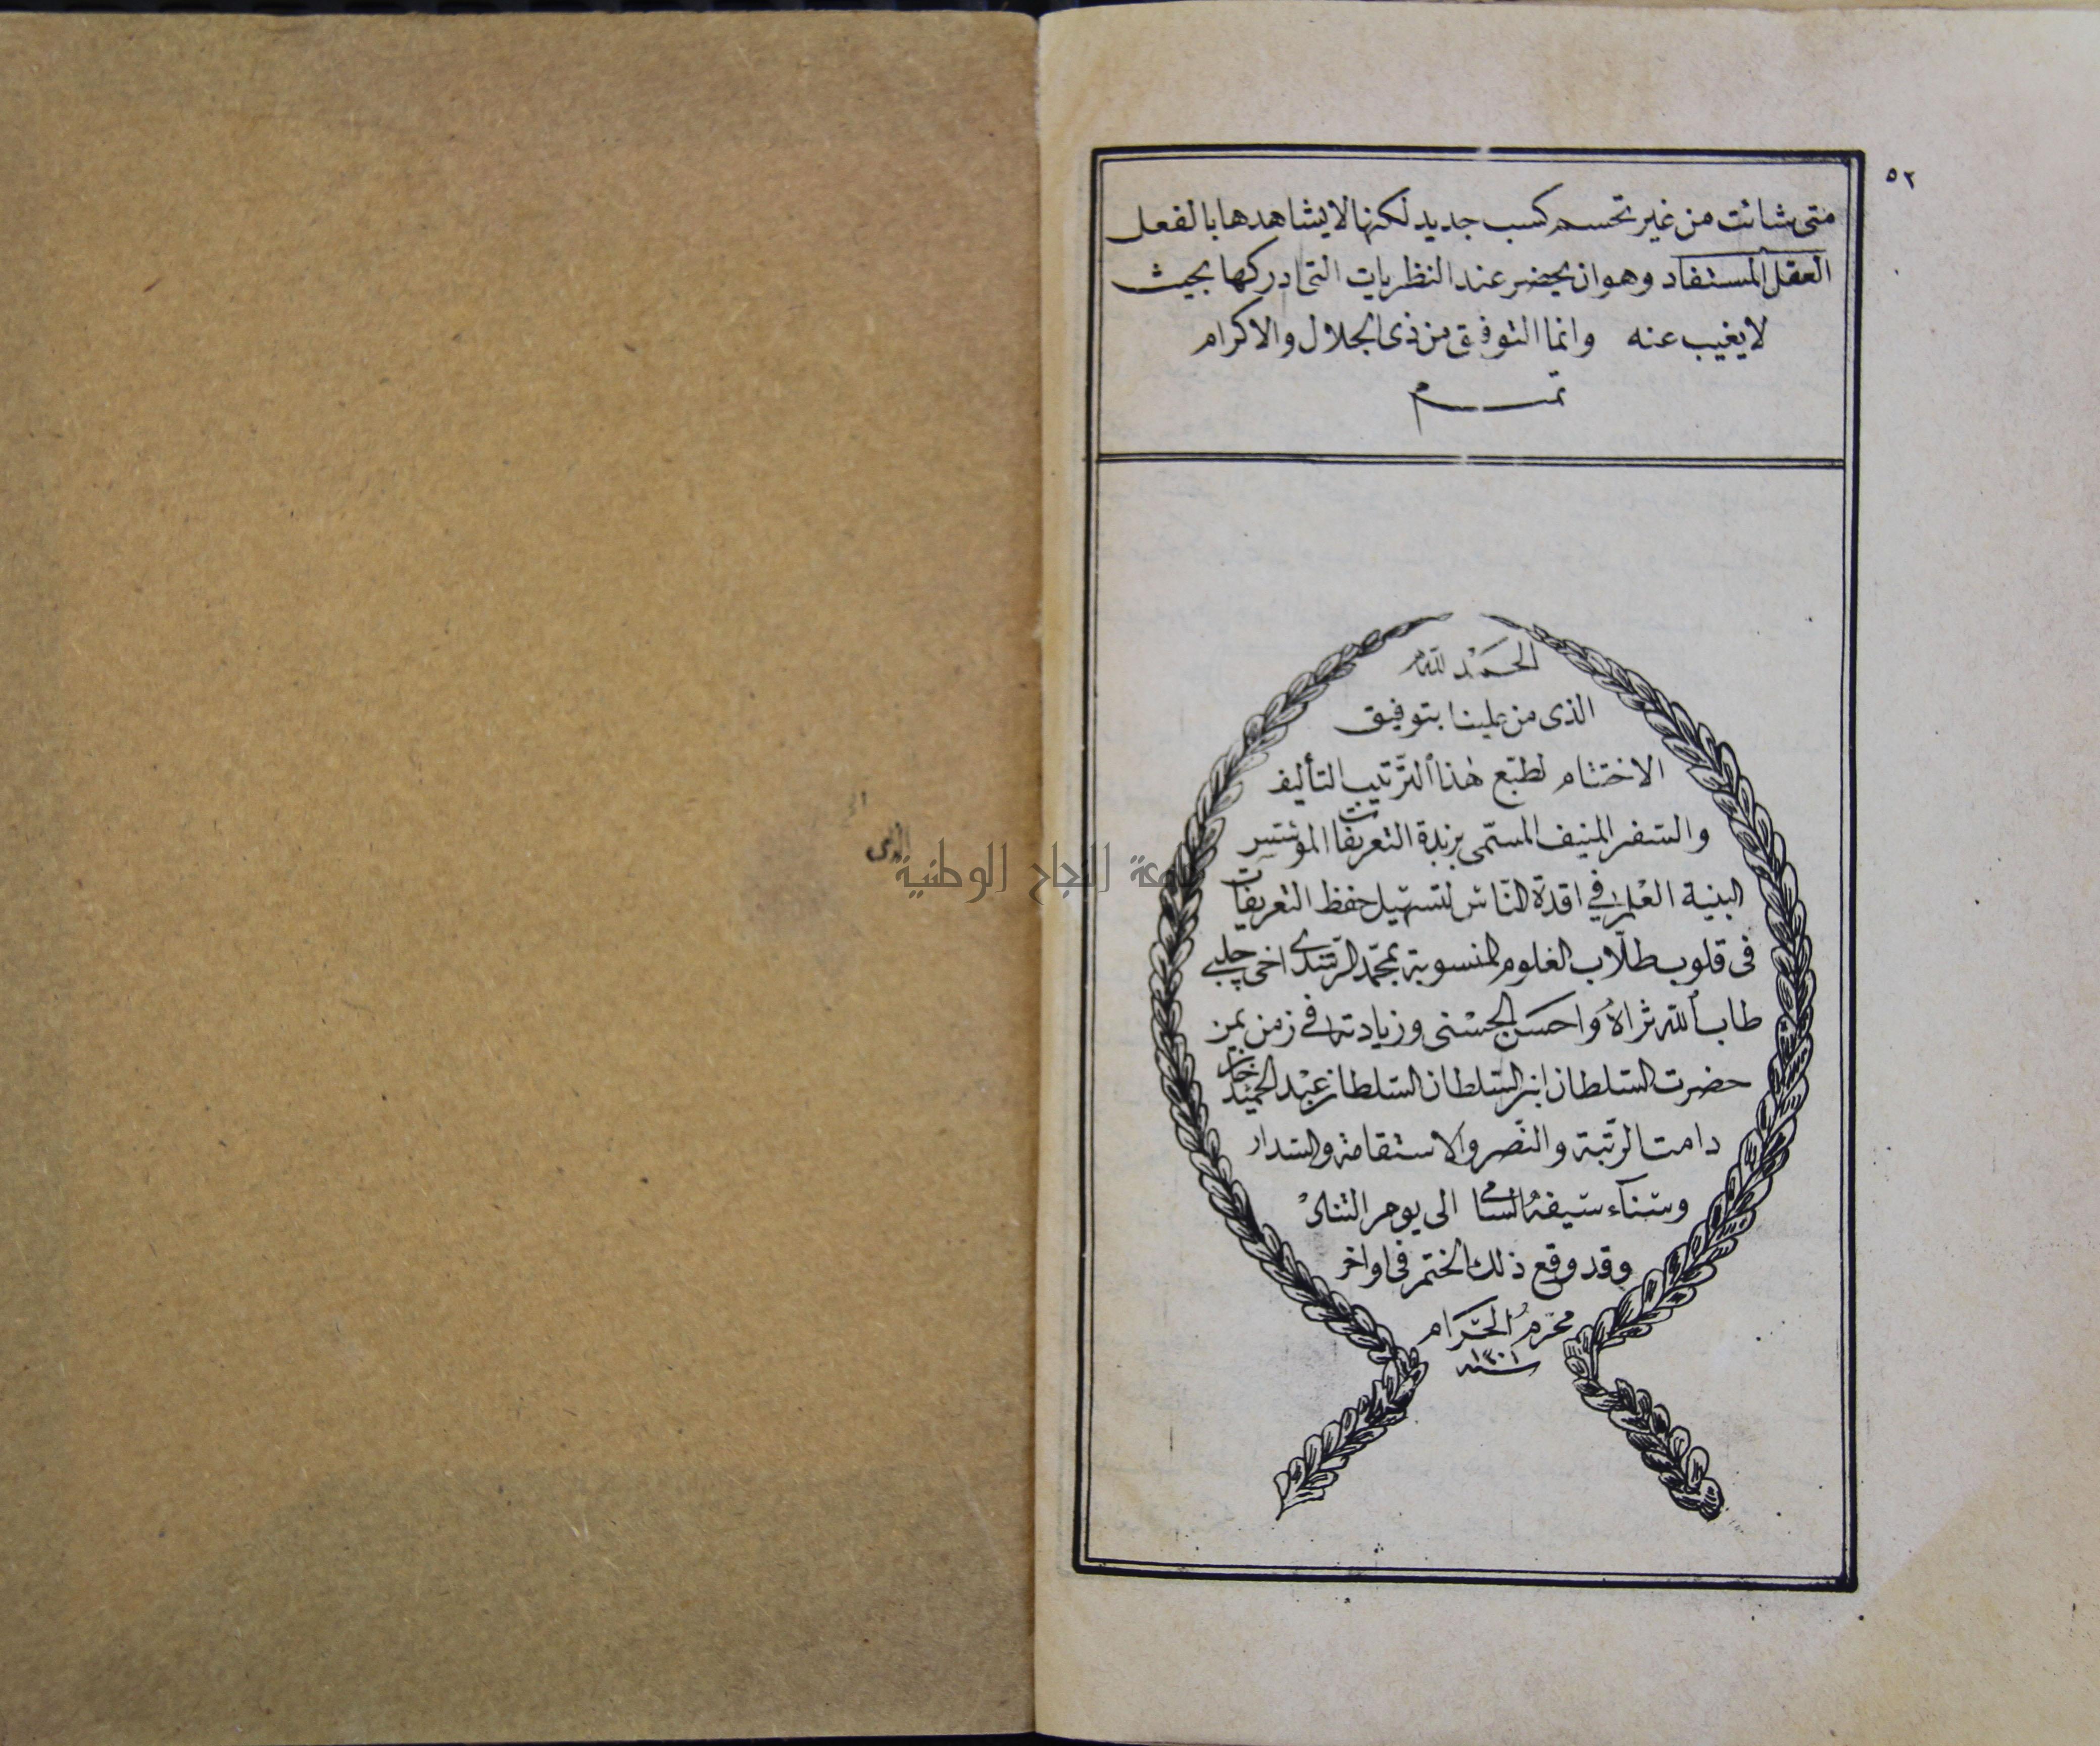 ٥٢
متى شائت من غير تجسم كسب جديد لكنها لايشاهدها بالفعل
العقل المستفاد وهوان يحضر عند النظريات التى ادركها بحيث
لايغيب عنه وانما التوفيق من ذى الجلال والاكرام
تمم
الحمد لله
الذى من علينا بتوفيق
الاختتام لطبع هذا الترتيب التأليف
والسفر المنيف المسمى بزبدة التعريفات المؤسس
البنية العلم فى افدة الناس لتسهيل حفظ التعريفات
فى قلوب طلاب العلوم المنسوبة بمحمد الرشدى اخى چلبى
طاب الله ثراه واحسن الحسنى وزيادته فى زمن يمن
حضرت السلطان ابن السلطان السلطان عبد الحميد خان
دامت الرتبة والنصر والاستقامة والسدار
وسناء سيفه السامى الى يوم التناد
وقد وقع ذلك الختم فى اواخر
محرم الحرام
سنه ١٣٠١
جامعة النجاح الوطنية